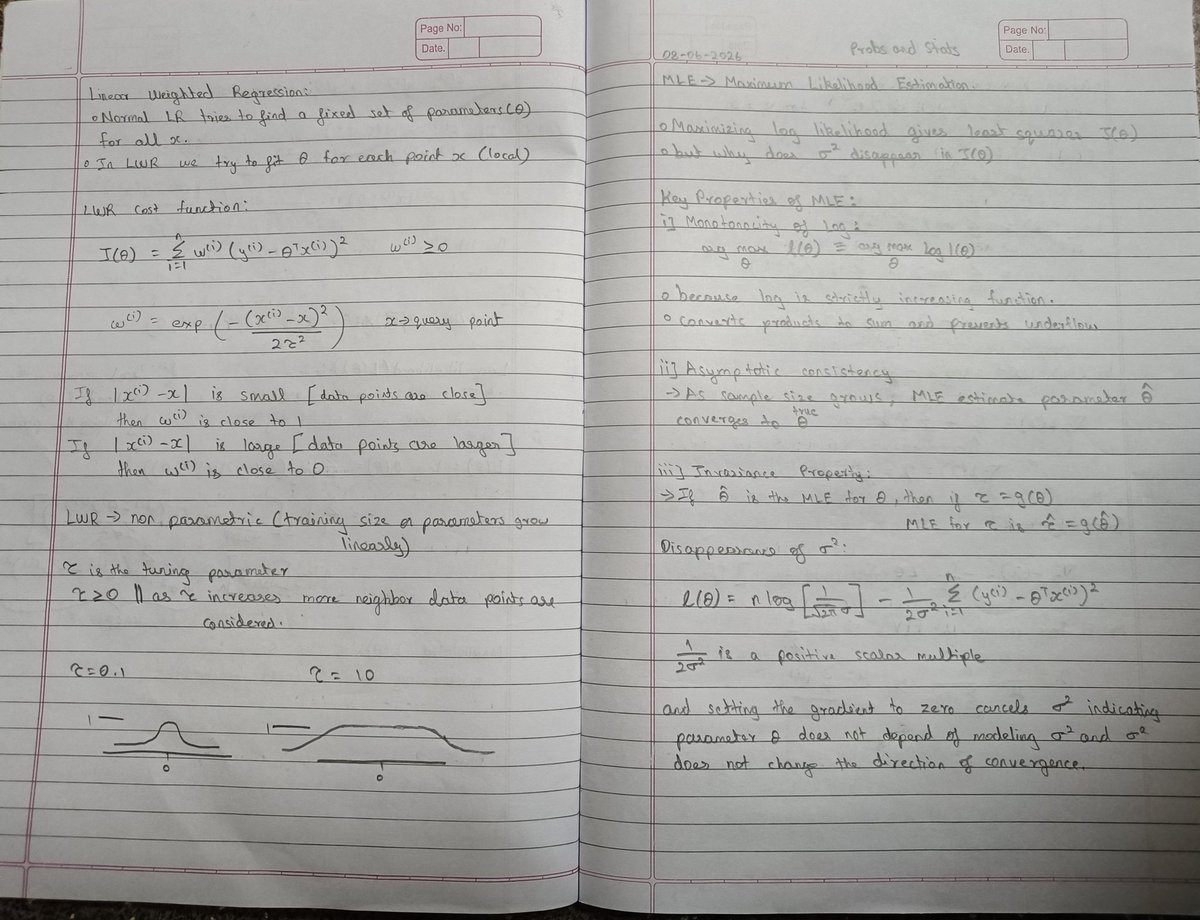 Page No:
Date.
Linear Weighted Regression:
o Normal LR tries to find a fixed set of parameters (θ)
for all x.
o In LWR we try to fit θ for each point x (local)
LWR cost function:
J(θ) = Σ_{i=1}^{n} w^(i) (y^(i) - θ^T x^(i))^2    w^(i) ≥ 0
w^(i) = exp (-(x^(i) - x)^2 / 2τ^2)    x → query point
If |x^(i) - x| is small [data points are close]
then w^(i) is close to 1
If |x^(i) - x| is large [data points are larger]
then w^(i) is close to 0
LWR → non parametric (training size on parameters grow
linearly)
τ is the tuning parameter
τ ≥ 0 || as τ increases more neighbor data points are
considered.
τ = 0.1    τ = 10
1    1
0    0
Page No:
Date.
08-06-2026    Probs and Stats
MLE → Maximum Likelihood Estimation.
o Maximizing log likelihood gives least squares J(θ)
o but why does σ^2 disappear in J(θ)
Key Properties of MLE:
i] Monotonncity of log:
arg max_θ l(θ) ≡ arg max_θ log l(θ)
o because log is strictly increasing function.
o converts products to sum and prevents underflow
ii] Asymptotic consistency
→ As sample size grows, MLE estimate parameter θ̂
converges to θ^true
iii] Invariance Property:
→ If θ̂ is the MLE for θ, then if τ = g(θ)
MLE for τ is τ̂ = g(θ̂)
Disappearance of σ^2:
l(θ) = n log [1 / √2π σ] - 1/2σ^2 Σ_{i=1}^{n} (y^(i) - θ^T x^(i))^2
1/2σ^2 is a positive scalar multiple
and setting the gradient to zero cancels σ^2 indicating
parameter θ does not depend of modeling σ^2 and σ^2
does not change the direction of convergence.